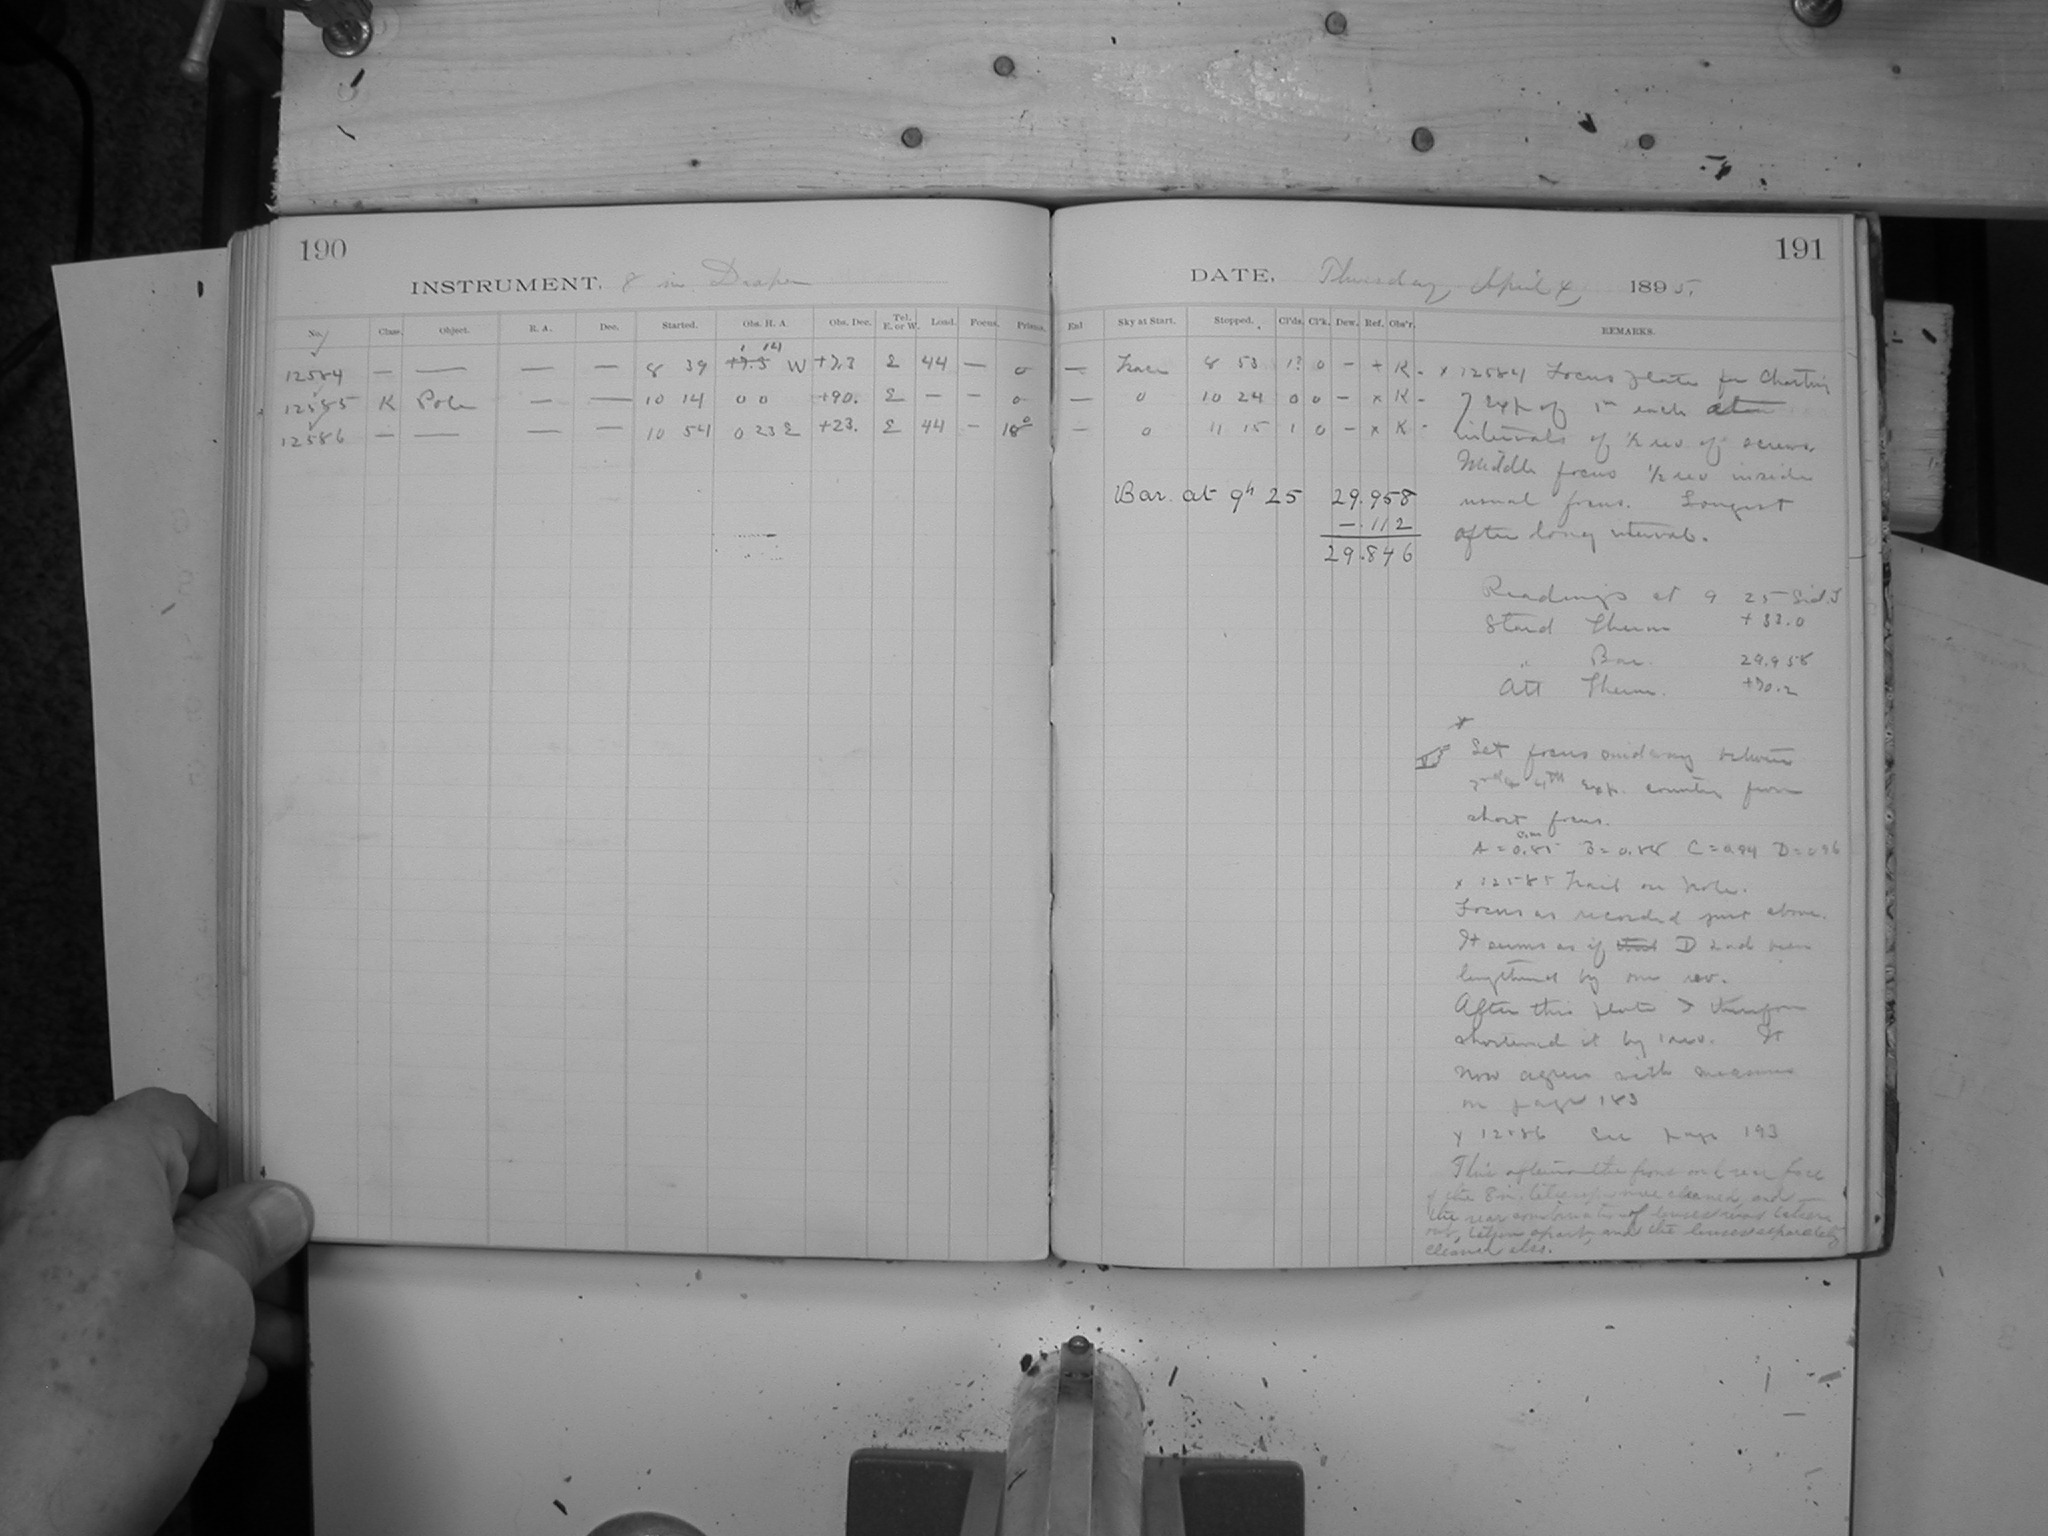 190
INSTRUMENT, 8 in. Draper
No. Class. Object. R. A. Dec. Started. Obs. H. A. Obs. Dec. Tel. E. or W. Load. Focus. Prisms.
12584 — — — — 8 39 +7.5 1 14 W +7.3 E 44 — 0
12585 K Pole — — 10 14 0 0 +90. E — — 0
12586 — — — — 10 54 0 23 E +23. E 44 — 18°
191
DATE, Thursday, April 4, 1895.
Exl Sky at Start. Stopped. Cl'ds. Cl'k. Dew. Ref. Obs'r. REMARKS.
— 8 53 1? 0 — + K -
— 0 10 24 0 0 — x K -
— 0 11 15 1 0 — x K -
Bar. at 9h 25 29.958
— .112
29.846
x 12584 Focus plate for Charting
7 Exp. of 1m each
intervals of ½ rev. of screw.
Middle focus ½ rev inside
usual focus. Longest
after long interval.
Readings at 9 25 Sid. T
Stand Therm +33.0
" Bar. 29.958
Att Therm. +70.2
*
Set focus midway between
3rd & 4th Exp. counting from
short focus.
A = 0.85 cm B = 0.88 C = 0.94 D = 0.96
x 12585 Trail on Pole.
Focus as recorded just above.
It seems as if D had been
lengthened by one rev.
After this plate I therefore
shortened it by 1 rev. It
now agrees with measures
on page 183
x 12586 See page 193
This afternoon the front and rear face
of the 8 in. telescope were cleaned, and
the rear combination of lenses was taken
out, taken apart, and the lenses separately
cleaned also.